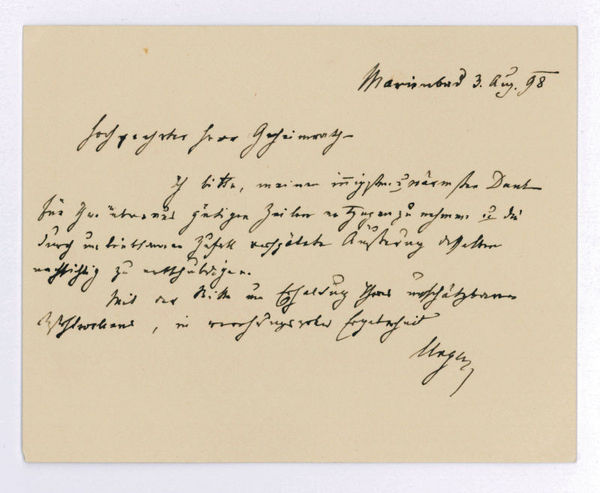 Marienbad 3. Aug. 98
Hochgeehrter Herr Geheimrath
Ich bitte, meinen innigsten u. wärmsten Dank
für Ihre überaus gütigen Zeilen entgegenzunehmen u. die
durch Zufall verspätete Äußerung desselben
nachsichtig zu entschuldigen.
Mit der Bitte um Erhaltung Ihres unschätzbaren
Wohlwollens, in verehrungsvoller Ergebenheit
Unger